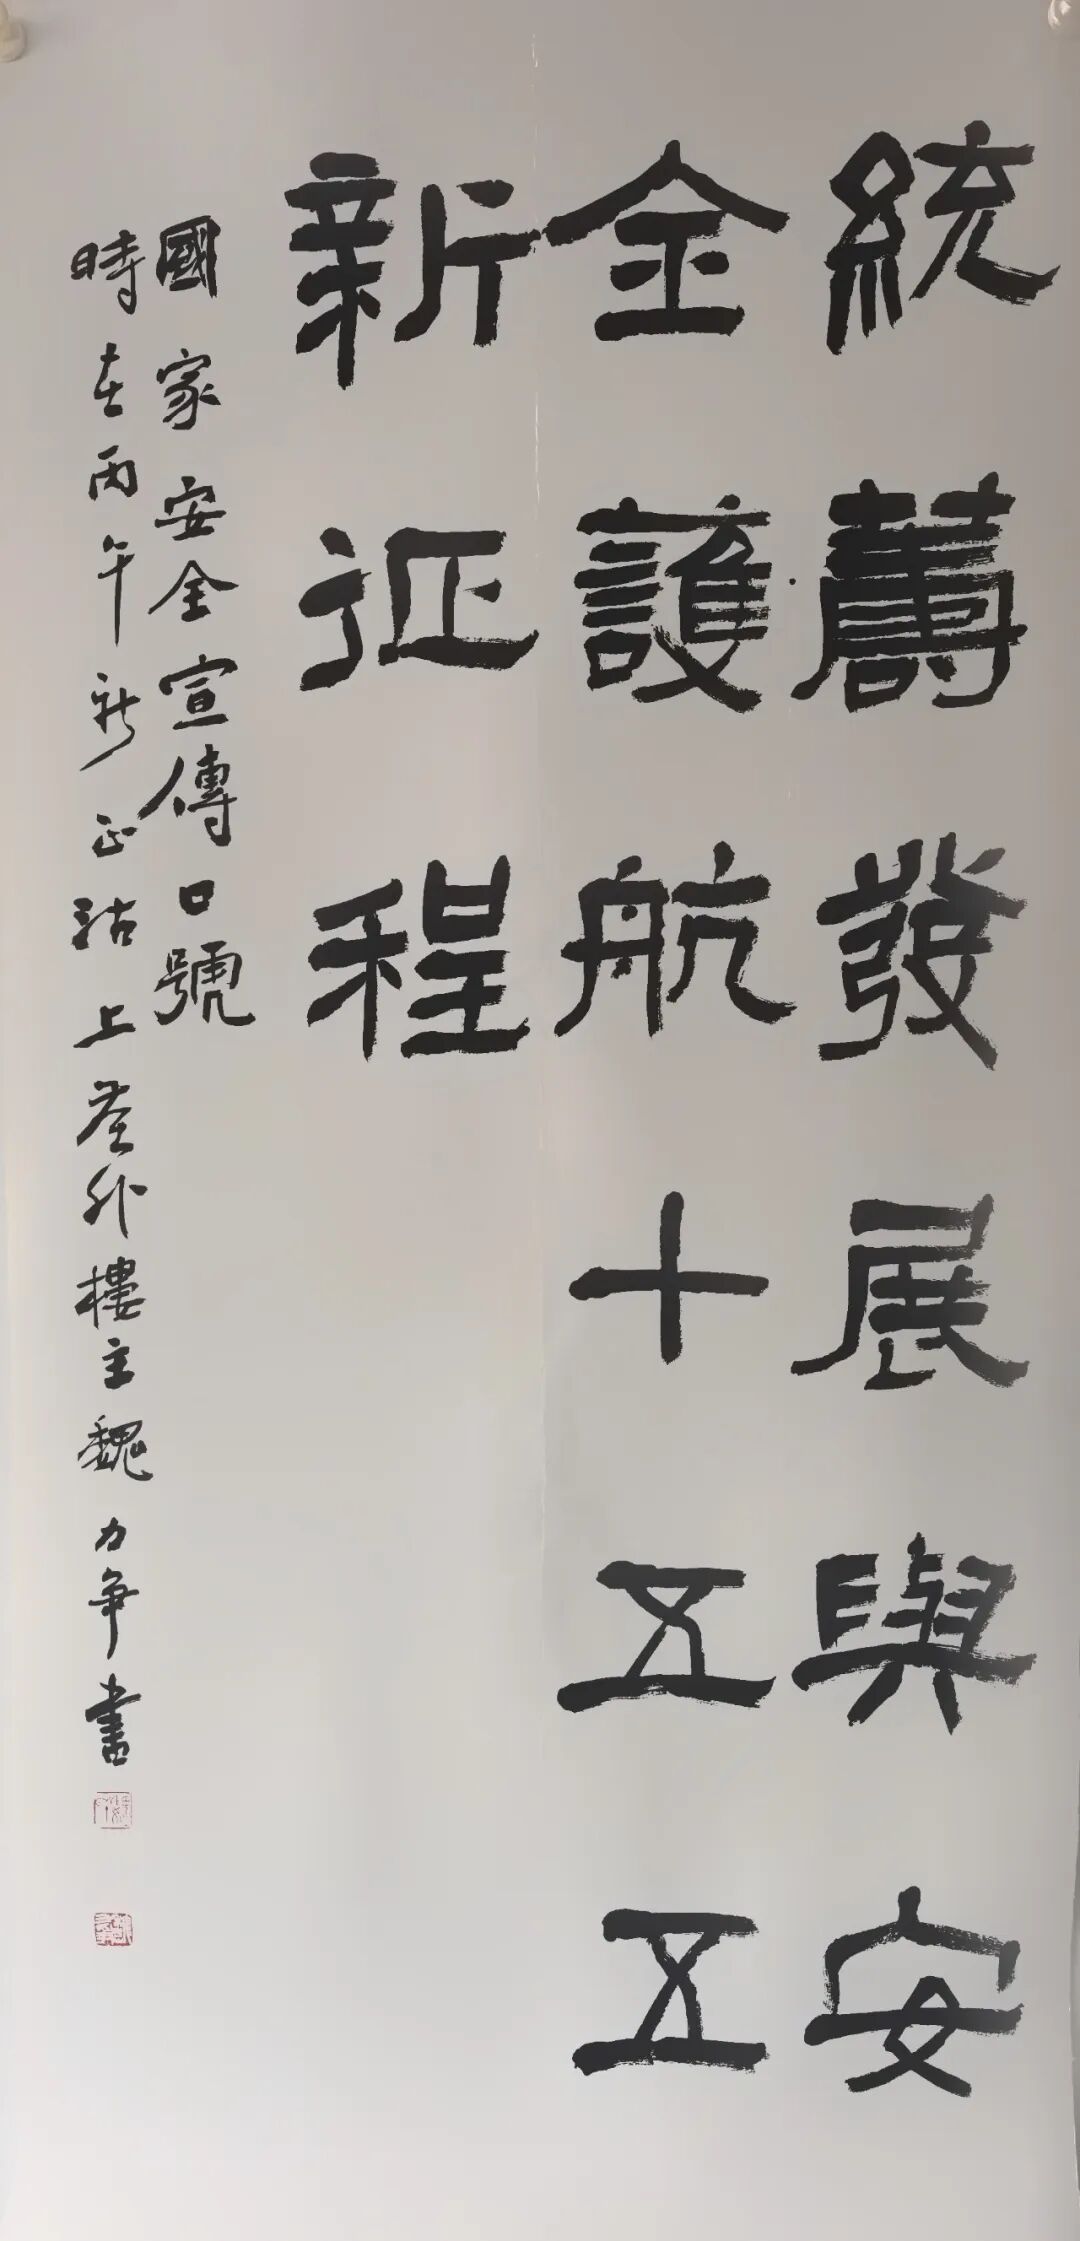 統籌發展與安
全護航十五五
新征程
國家安全宣傳口號
時在丙午新正沽上荃外樓主魏力争書